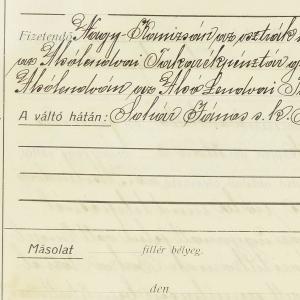 Fizetendő Nagy-Kanizsán az osztrák
az Alsólendvai Takarékpénztár
Alsólendván az Alsó Lendvai
A váltó hátán: János s. k.
Másolat fillér bélyeg.
den